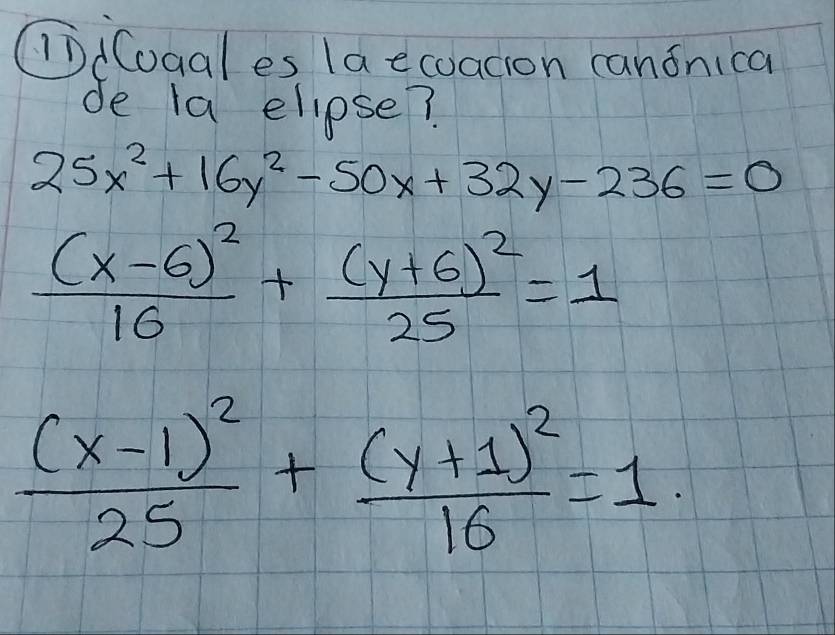 11) ¿Cuaal es la ecuacion canónica
de la elipse?
25x² + 16y² - 50x + 32y - 236 = 0
(x-6)²/16 + (y+6)²/25 = 1
(x-1)²/25 + (y+1)²/16 = 1.